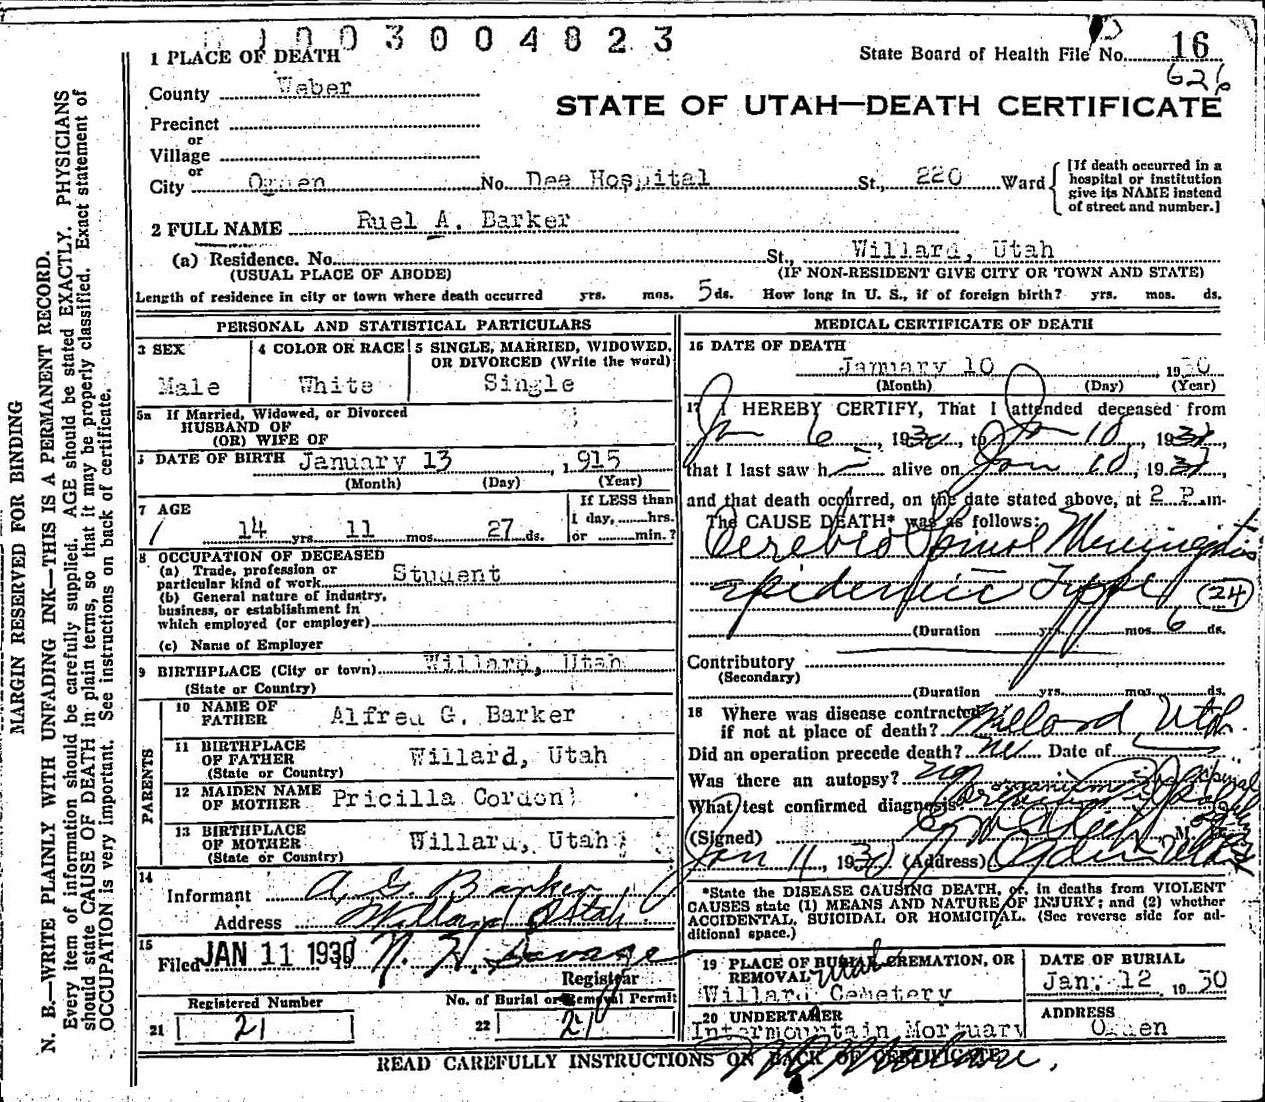 003004823
State Board of Health File No. 16
626
1 PLACE OF DEATH
County Weber
STATE OF UTAH—DEATH CERTIFICATE
Precinct
or
Village
or
City Ogden No. Dee Hospital St., 220 Ward
[If death occurred in a
hospital or institution
give its NAME instead
of street and number.]
2 FULL NAME Ruel A. Barker
(a) Residence. No. St., Willard, Utah
(USUAL PLACE OF ABODE) (IF NON-RESIDENT GIVE CITY OR TOWN AND STATE)
Length of residence in city or town where death occurred yrs. mos. 5 ds. How long in U. S., if of foreign birth? yrs. mos. ds.
PERSONAL AND STATISTICAL PARTICULARS
3 SEX
Male
4 COLOR OR RACE
White
5 SINGLE, MARRIED, WIDOWED,
OR DIVORCED (Write the word)
Single
5a If Married, Widowed, or Divorced
HUSBAND OF
(OR) WIFE OF
DATE OF BIRTH January 13, 1915
(Month) (Day) (Year)
7 AGE
14 yrs. 11 mos. 27 ds.
If LESS than
1 day, hrs.
or min.?
8 OCCUPATION OF DECEASED
(a) Trade, profession or
particular kind of work Student
(b) General nature of industry,
business, or establishment in
which employed (or employer)
(c) Name of Employer
9 BIRTHPLACE (City or town) Willard, Utah
(State or Country)
PARENTS
10 NAME OF
FATHER Alfred G. Barker
11 BIRTHPLACE
OF FATHER Willard, Utah
(State or Country)
12 MAIDEN NAME
OF MOTHER Pricilla Cordon
13 BIRTHPLACE
OF MOTHER Willard, Utah
(State or Country)
14
Informant A. G. Barker
Address Willard Utah
15
Filed JAN 11 1930 N. H. Savage
Registrar
Registered Number
21 21
No. of Burial or Removal Permit
22 21
MEDICAL CERTIFICATE OF DEATH
16 DATE OF DEATH
January 10, 1930
(Month) (Day) (Year)
17 I HEREBY CERTIFY, That I attended deceased from
Jan 6, 1930, to Jan 10, 193
that I last saw h alive on Jan 10, 193
and that death occurred, on the date stated above, at 2 P. m.
The CAUSE DEATH* was as follows:
Cerebro Spinal Meningitis
Epidemic Type (24)
(Duration yrs. mos. 6 ds.
Contributory
(Secondary)
(Duration yrs. mos. ds.
18 Where was disease contracted
if not at place of death? Willard, Utah
Did an operation precede death? no Date of
Was there an autopsy?
What test confirmed diagnosis organism in Spinal
(Signed) M. D.
Jan 11, 1930 (Address) Ogden Utah
*State the DISEASE CAUSING DEATH, or, in deaths from VIOLENT
CAUSES state (1) MEANS AND NATURE OF INJURY; and (2) whether
ACCIDENTAL, SUICIDAL OR HOMICIDAL. (See reverse side for ad-
ditional space.)
19 PLACE OF BURIAL, CREMATION, OR
REMOVAL Utah
Willard Cemetery
DATE OF BURIAL
Jan. 12, 1930
20 UNDERTAKER
Intermountain Mortuary
ADDRESS
Ogden
READ CAREFULLY INSTRUCTIONS ON BACK OF CERTIFICATE
MARGIN RESERVED FOR BINDING
N. B.—WRITE PLAINLY WITH UNFADING INK—THIS IS A PERMANENT RECORD.
Every item of information should be carefully supplied. AGE should be stated EXACTLY. PHYSICIANS
should state CAUSE OF DEATH in plain terms, so that it may be properly classified. Exact statement of
OCCUPATION is very important. See instructions on back of certificate.